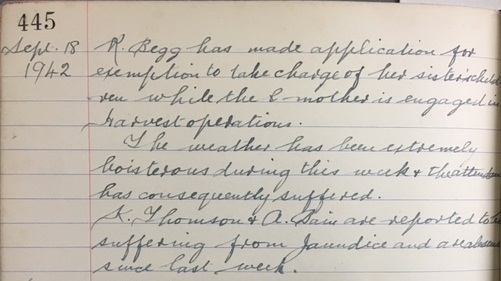 445
Sept. 18 K. Begg has made application for
1942 exemption to take charge of her sister's child
ren while the mother is engaged in
harvest operations.
The weather has been extremely
boisterous during this week & the atten
has consequently suffered.
K. Thomson & A. Bain are reported to
suffering from Jaundice and are absent
since last week.